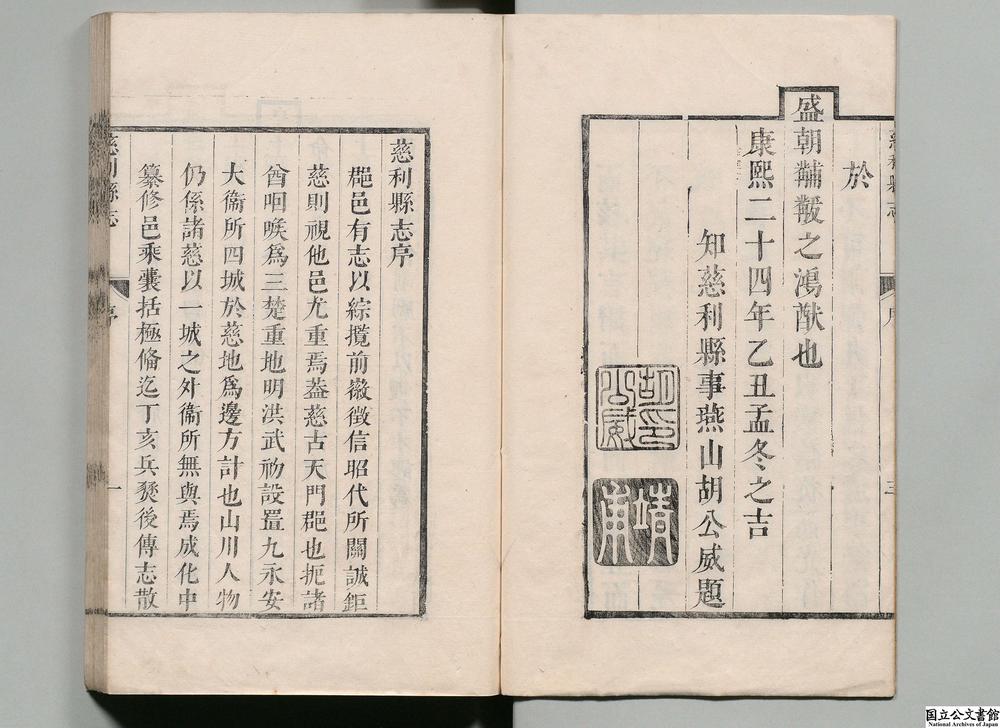 於
盛朝黼黻之鴻猷也
康熙二十四年乙丑孟冬之吉
知慈利縣事燕山胡公威題
胡公威印
慈利縣志序
郡邑有志以綜攬前徽徵信昭代所關誠鉅
慈則視他邑尤重焉葢慈古天門郡也扼諸
酋咽喉為三楚重地明洪武初設置九永安
大衞所四城於慈地為邊方計也山川人物
仍係諸慈以一城之外衞所無與焉成化中
纂修邑乘囊括極備迄丁亥兵燹後傳志散
慈利縣志
序
一
国立公文書館
National Archives of Japan